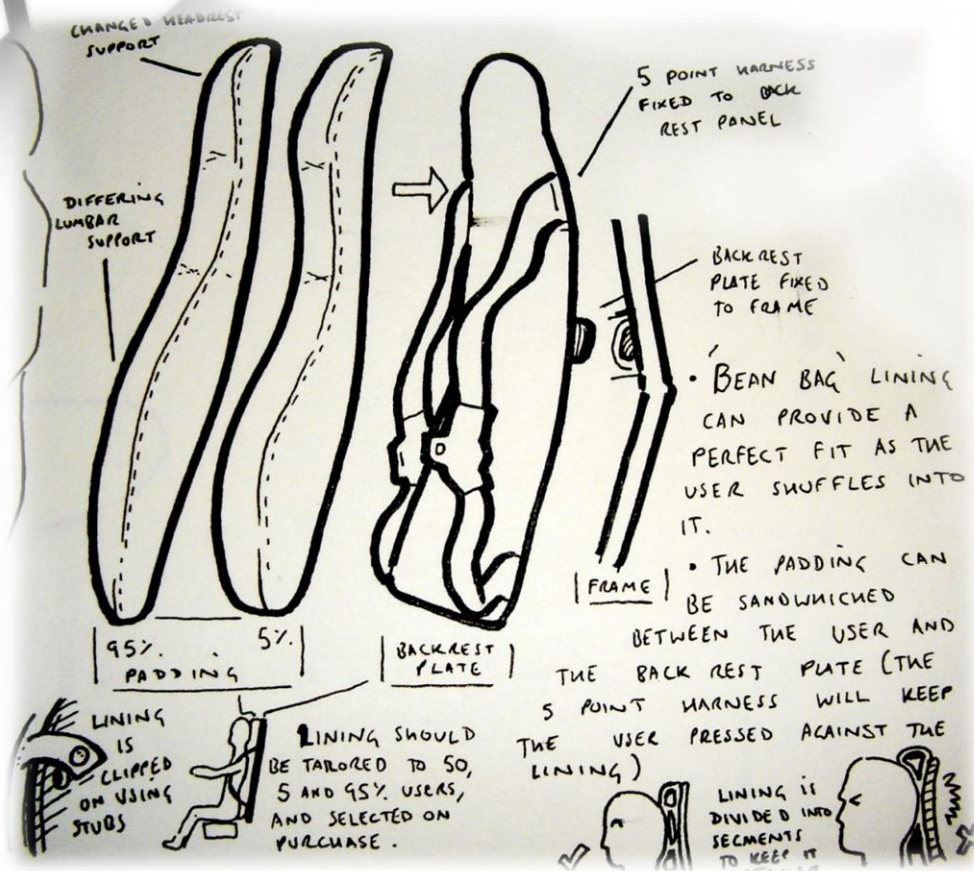 CHANGED HEADREST
SUPPORT
5 POINT HARNESS
FIXED TO BACK
REST PANEL
DIFFERING
LUMBAR
SUPPORT
BACKREST
PLATE FIXED
TO FRAME
• 'BEAN BAG' LINING
CAN PROVIDE A
PERFECT FIT AS THE
USER SHUFFLES INTO
IT.
• THE PADDING CAN
BE SANDWHICHED
BETWEEN THE USER AND
THE BACK REST PLATE (THE
5 POINT HARNESS WILL KEEP
THE USER PRESSED AGAINST THE
LINING)
FRAME
95%. 5%.
PADDING
BACKREST
PLATE
LINING
IS
CLIPPED
ON USING
STUBS
LINING SHOULD
BE TAILORED TO 50,
5 AND 95% USERS,
AND SELECTED ON
PURCHASE.
LINING IS
DIVIDED INTO
SEGMENTS
TO KEEP IT